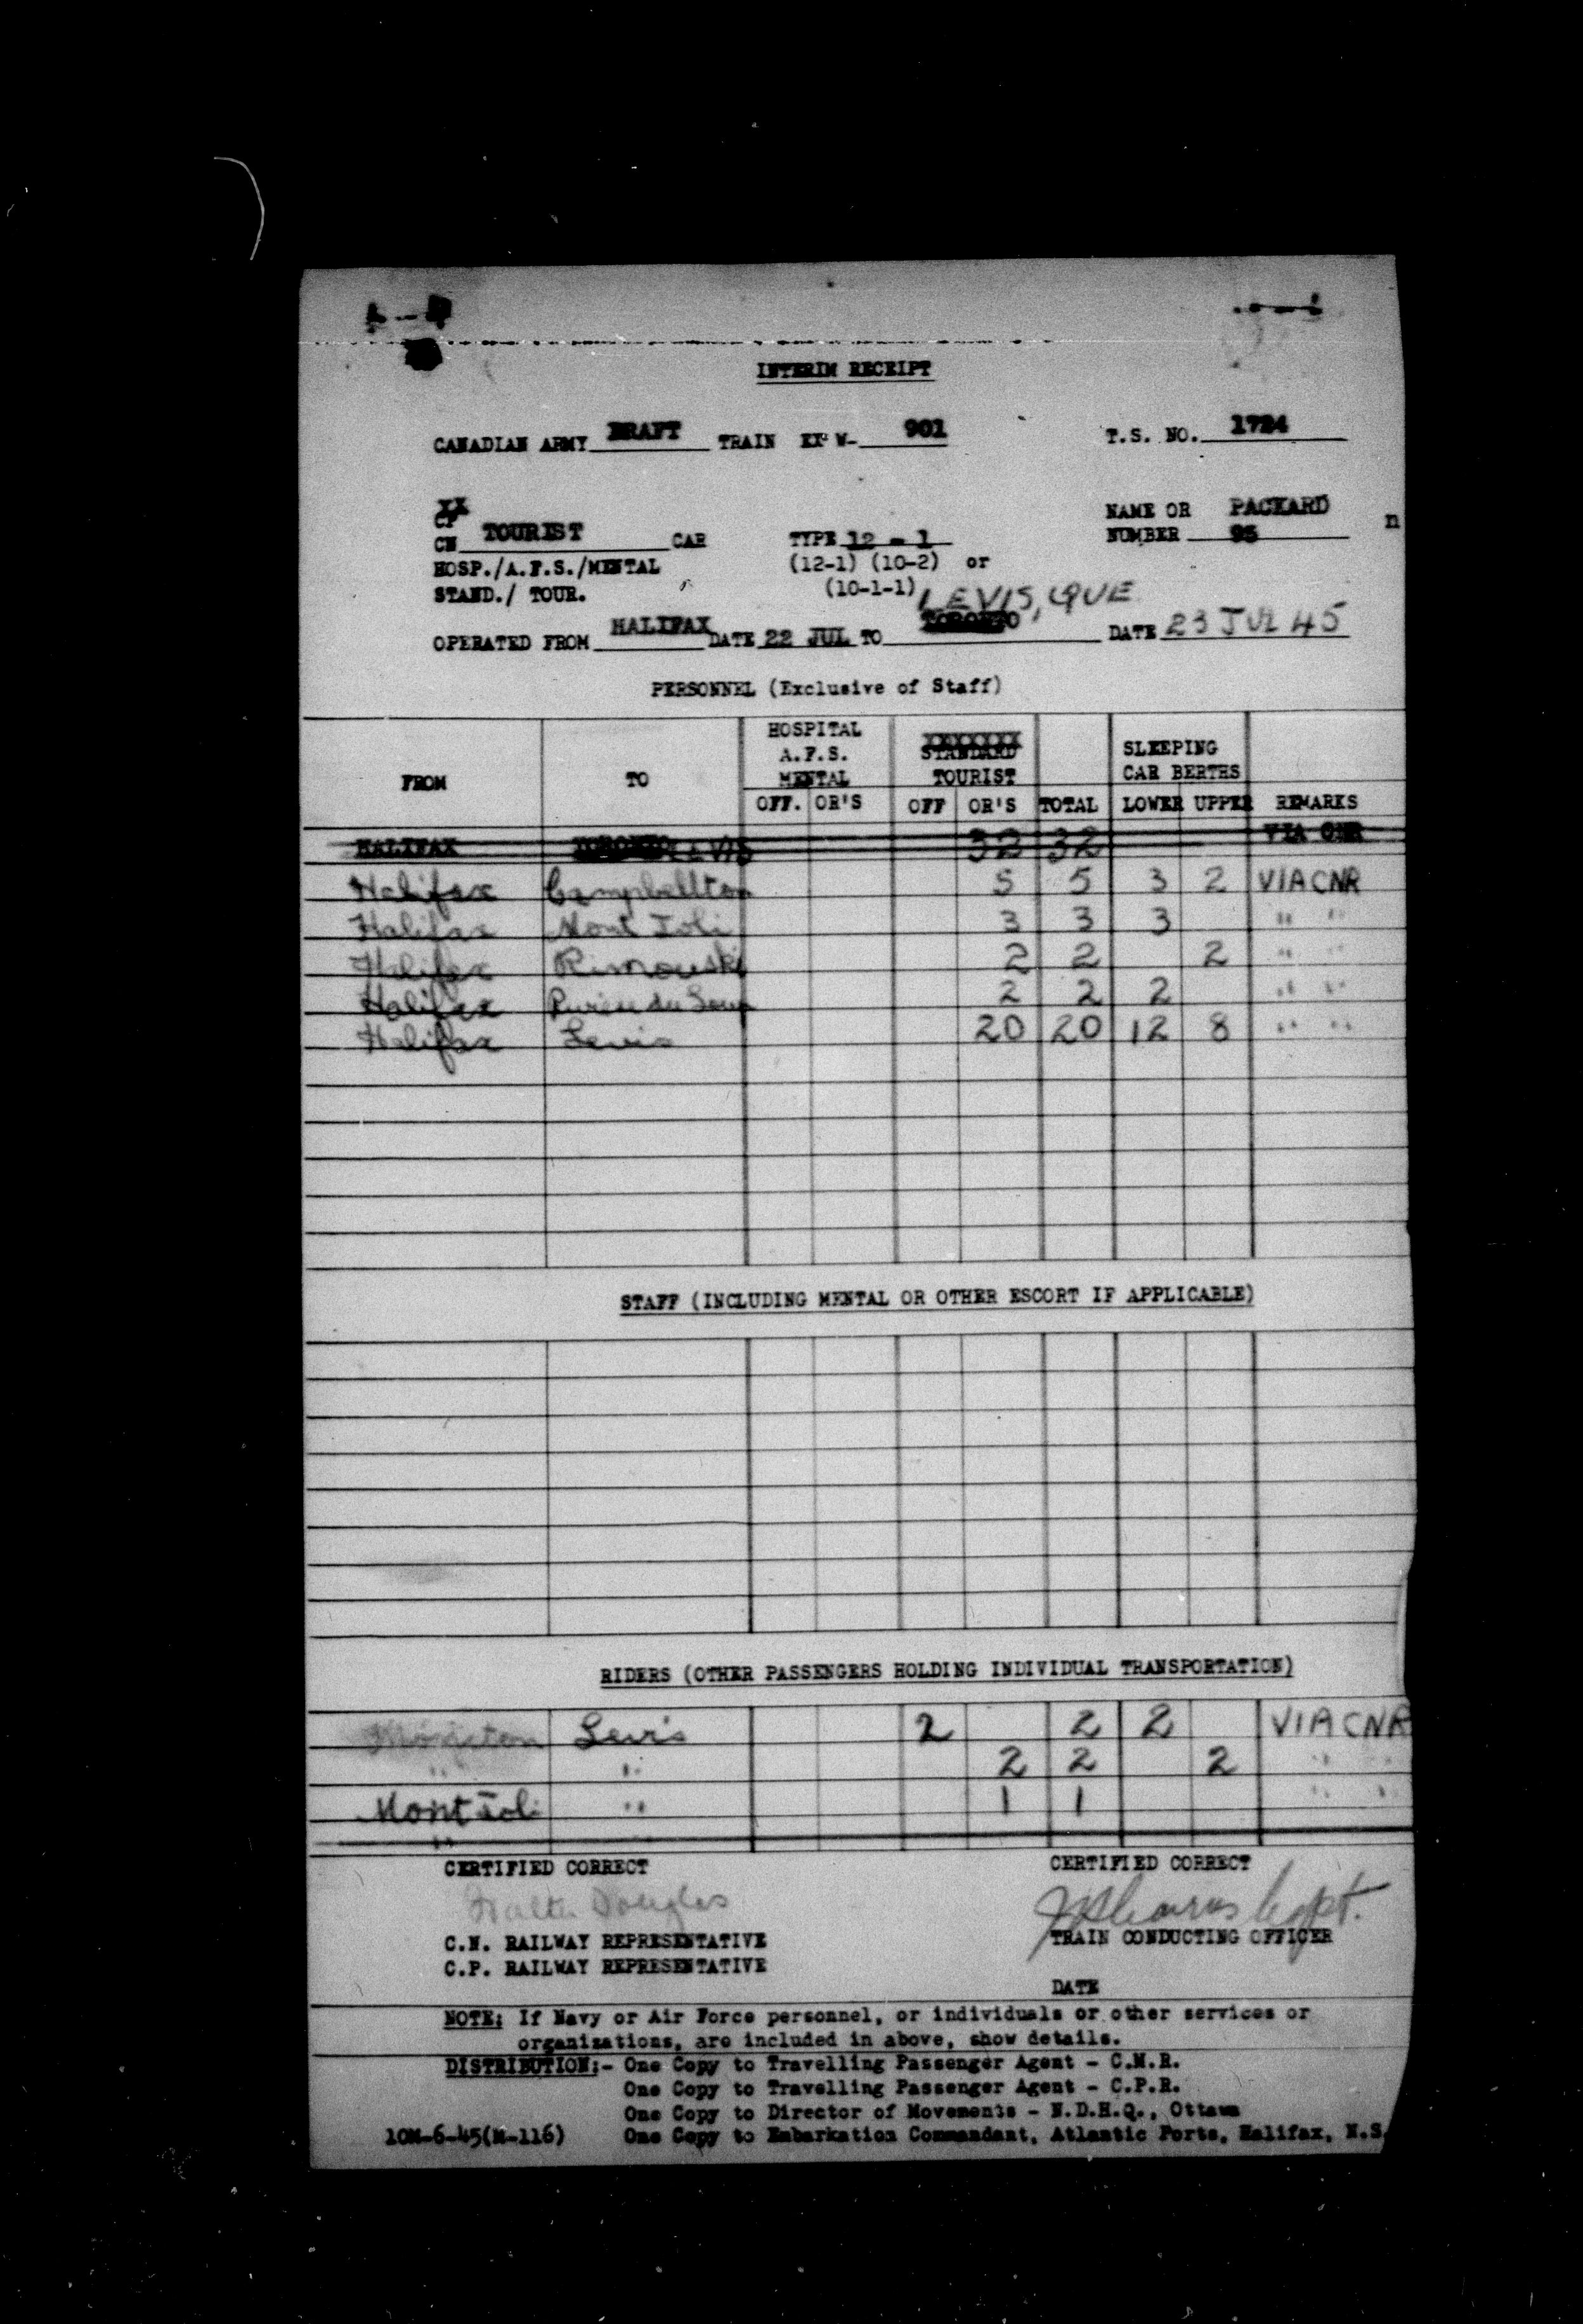 INTERIM RECEIPT
CANADIAN ARMY DRAFT TRAIN EX W- 901 T.S. NO. 1724
XX
CP
CN TOURIST CAR TYPE 12 - 1 NAME OR NUMBER PACKARD 95 n
HOSP./A.F.S./MENTAL (12-1) (10-2) or
STAND./ TOUR. (10-1-1)
LEVIS, QUE
OPERATED FROM HALIFAX DATE 22 JUL TO TORONTO DATE 23 JUL 45
PERSONNEL (Exclusive of Staff)
FROM TO HOSPITAL A.F.S. MENTAL XXXXXXX STANDARD TOURIST SLEEPING CAR BERTHS
OFF. OR'S OFF OR'S TOTAL LOWER UPPER REMARKS
HALIFAX TORONTO LEVIS 32 32 VIA CNR
Halifax Campbellton 5 5 3 2 VIA CNR
Halifax Mont Joli 3 3 3 " "
Halifax Rimouski 2 2 2 " "
Halifax Riviere du Loup 2 2 2 " "
Halifax Levis 20 20 12 8 " "
STAFF (INCLUDING MENTAL OR OTHER ESCORT IF APPLICABLE)
RIDERS (OTHER PASSENGERS HOLDING INDIVIDUAL TRANSPORTATION)
Moncton Levis 2 2 2 VIA CNR
" " 2 2 2 " "
Mont Joli " 1 1 " "
CERTIFIED CORRECT CERTIFIED CORRECT
Walter Douglas Capt.
C.N. RAILWAY REPRESENTATIVE TRAIN CONDUCTING OFFICER
C.P. RAILWAY REPRESENTATIVE
DATE
NOTE: If Navy or Air Force personnel, or individuals or other services or
organizations, are included in above, show details.
DISTRIBUTION:- One Copy to Travelling Passenger Agent - C.N.R.
One Copy to Travelling Passenger Agent - C.P.R.
One Copy to Director of Movements - N.D.H.Q., Ottawa
10M-6-45(M-116) One Copy to Embarkation Commandant, Atlantic Ports, Halifax, N.S.